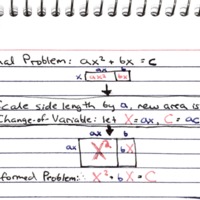 nal Problem: ax² + bx = c
ax b
x ax² bx
Scale side length by a, new area is
Change-of-Variable: let X = ax, C = ac
ax b
ax X² bX
formed Problem: X² + bX = C